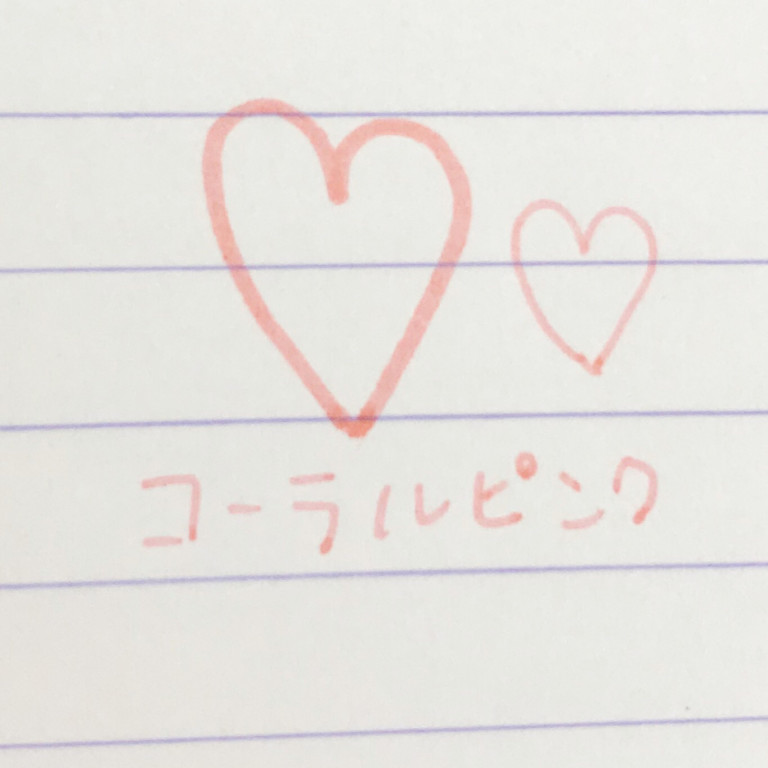 コーラルピンク